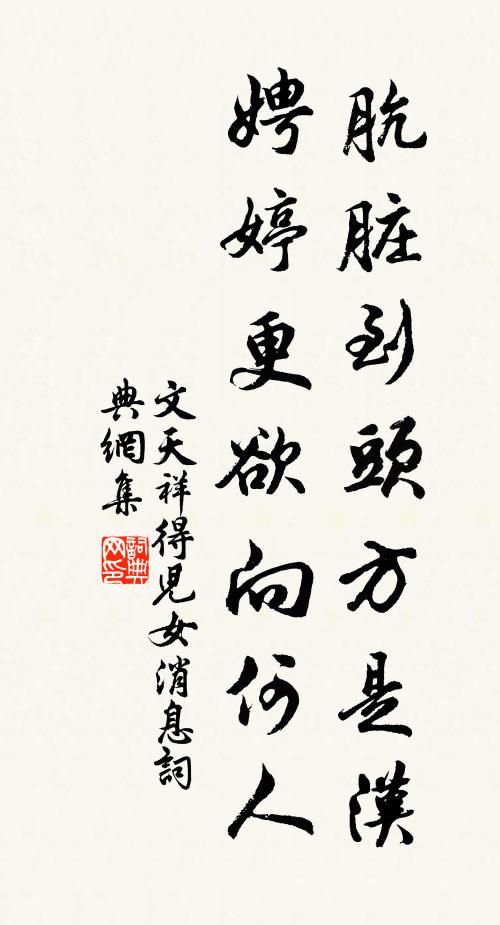 肮脏到頭方是漢
娉婷更欲向何人
文天祥得兒女消息詞
典網集
詞典
网印